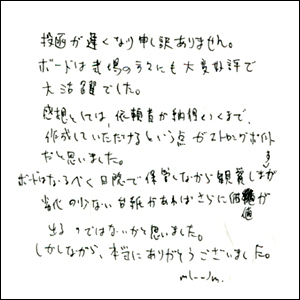 投函が遅くなり申し訳ありません。
ボードは式場の方々にも大変好評で
大活躍でした。
感想としては、依頼者が納得いくまで、
作成していただけるという点がストロングポイント
だと思いました。
ボードはなるべく日陰で保管しながら観賞しますが
劣化の少ない台紙があればさらに価値が
出るのではないかと思いました。
しかしながら、本当にありがとうございました。